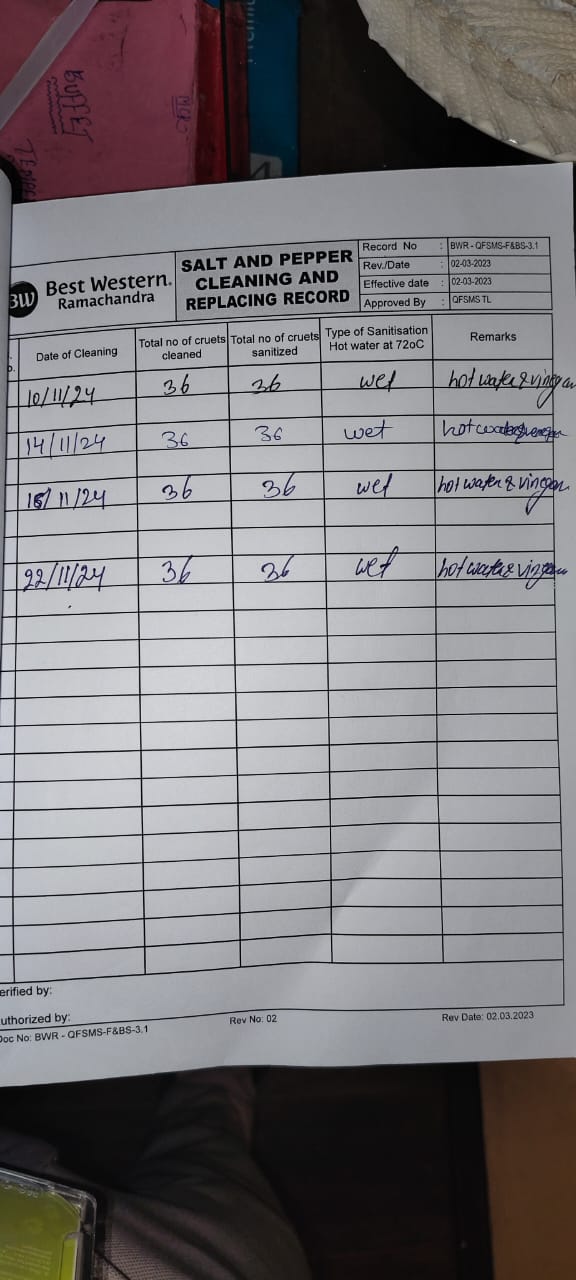 BUFFET
BW Best Western.
Ramachandra
SALT AND PEPPER
CLEANING AND
REPLACING RECORD
Record No : BWR - QFSMS-F&BS-3.1
Rev./Date : 02-03-2023
Effective date : 02-03-2023
Approved By : QFSMS TL
Date of Cleaning Total no of cruets cleaned Total no of cruets sanitized Type of Sanitisation Hot water at 72oC Remarks
10/11/24 36 36 wet hot water & vinegar
14/11/24 36 36 wet hot water
18/11/24 36 36 wet hot water & vinegar
22/11/24 36 36 wet hot water & vinegar
erified by:
uthorized by:
Doc No: BWR - QFSMS-F&BS-3.1 Rev No: 02 Rev Date: 02.03.2023